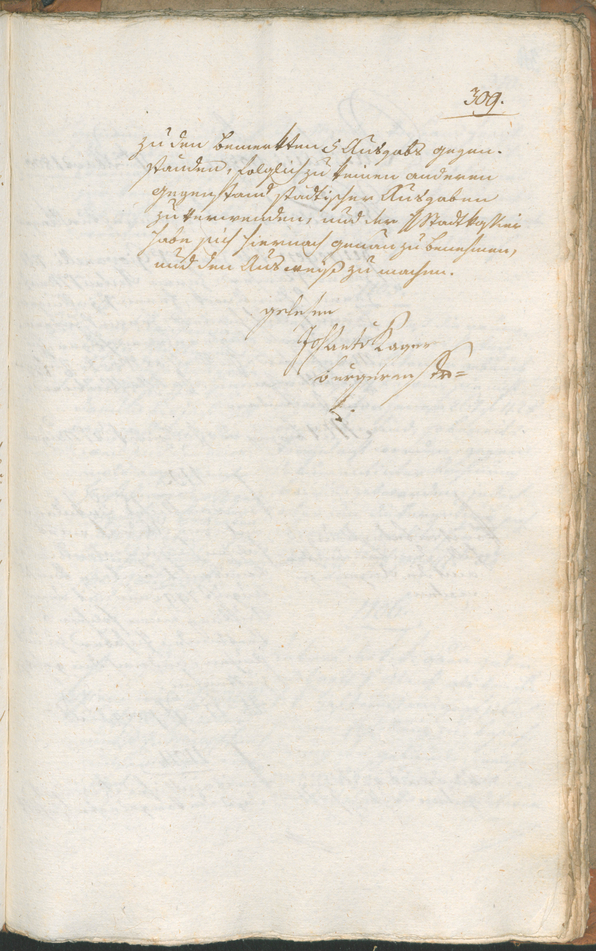 309.
zu den bemerkten 5 Ausgabs gegen-
ständen, folglich zu keinen anderen
Gegenstand städtischer Ausgaben
zu verwenden, und der Stadtkassier
habe sich hiernach genau zu benehmen,
und den Ausweiß zu machen.
gelesen
Kager